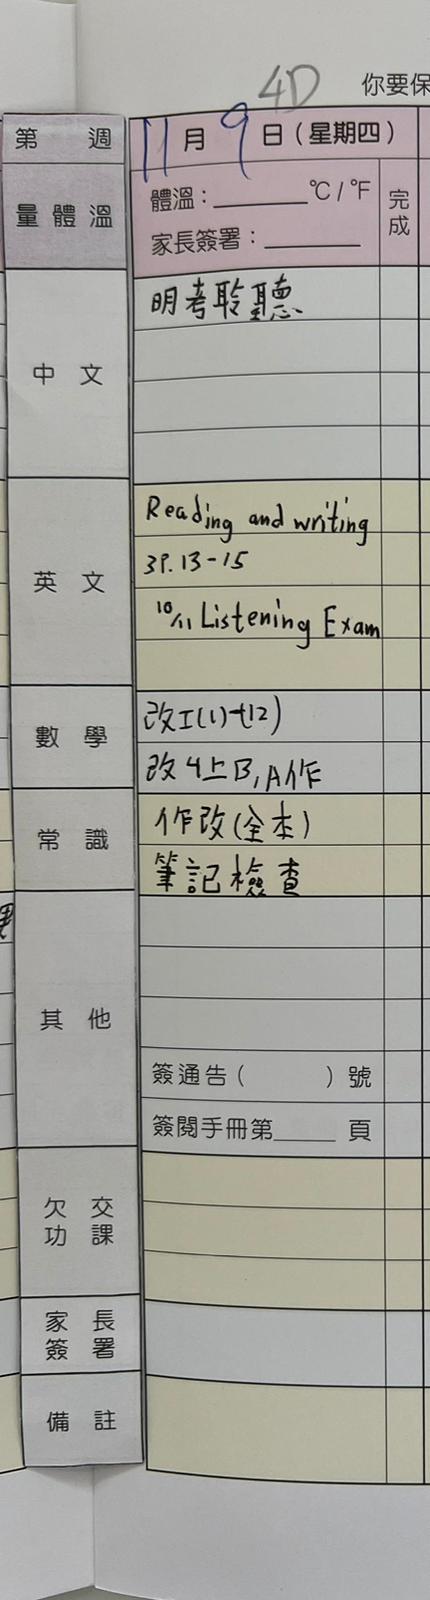 4D
你要保
第 週
11月9日(星期四)
量體溫
體溫：______℃/℉
家長簽署：______
完成
中文
明考聆聽
英文
Reading and writing
3P.13-15
10/11 Listening Exam
數學
改I(1)-(12)
改4上B,A作
常識
作改(全本)
筆記檢查
其他
簽通告( )號
簽閱手冊第____頁
欠交
功課
家長
簽署
備註